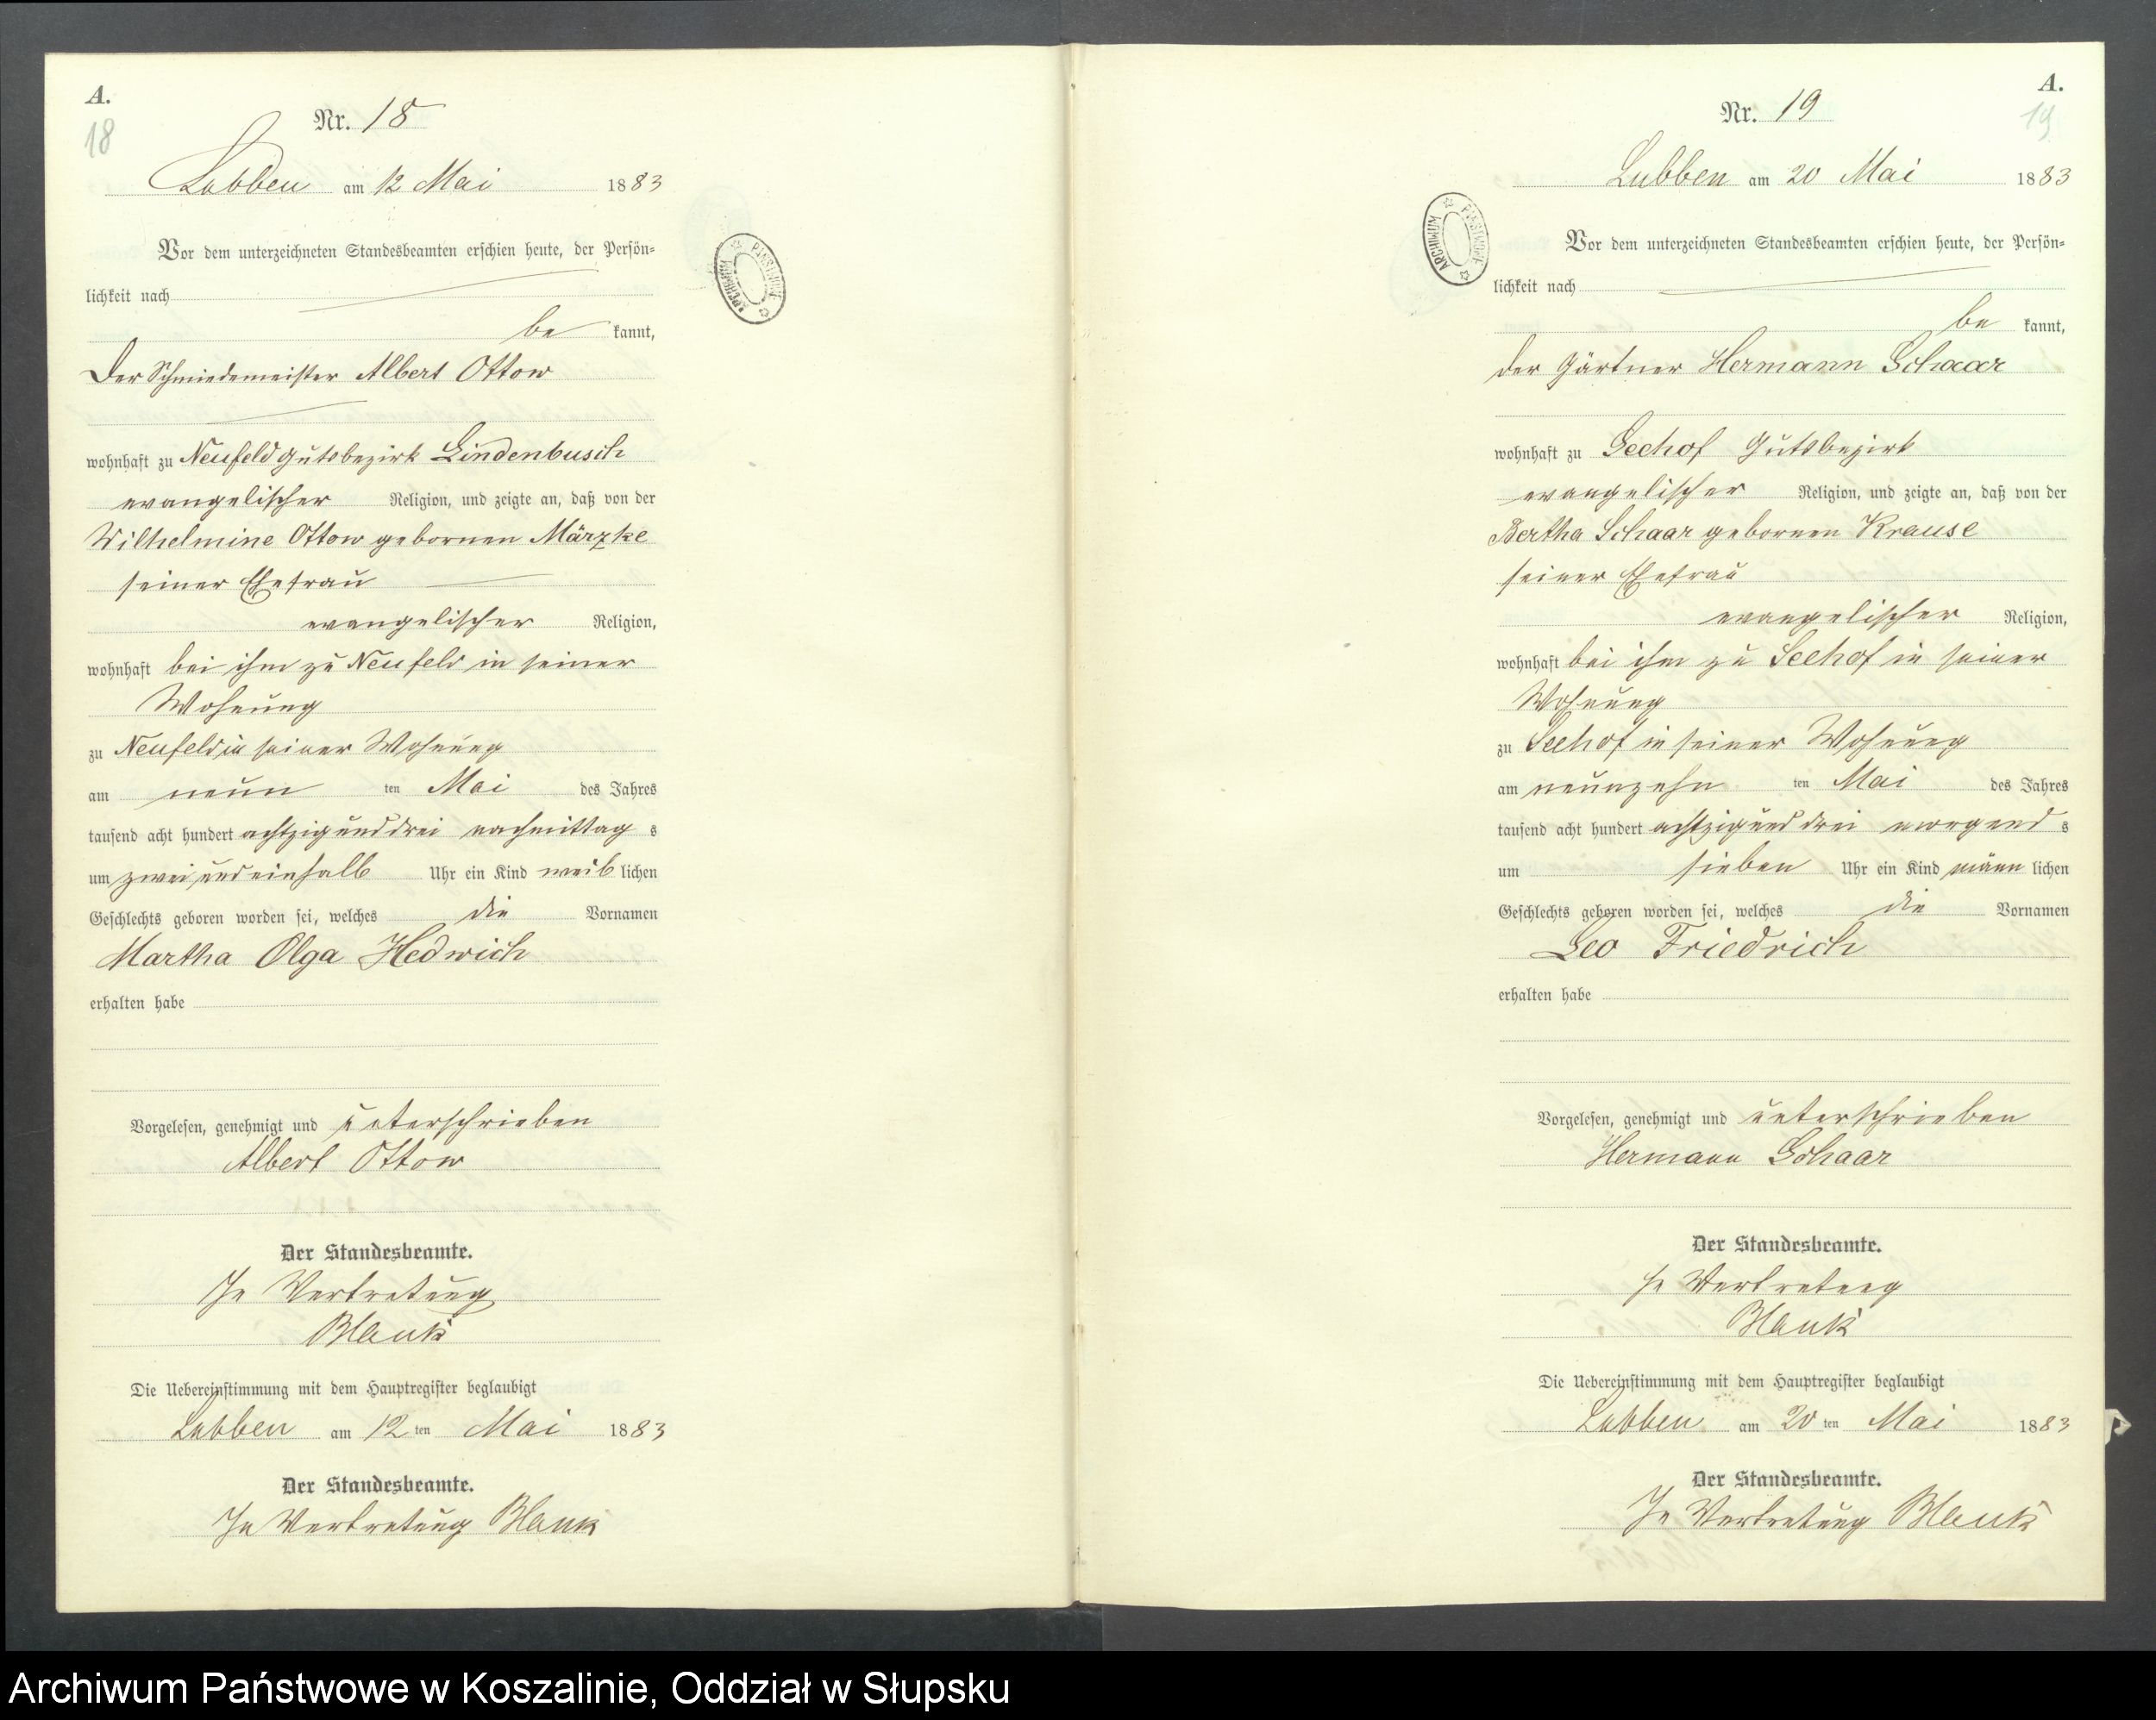 A.
18
Nr. 18
Lubben am 12 Mai 1883
Vor dem unterzeichneten Standesbeamten erschien heute, der Persön=
lichkeit nach
be kannt,
Der Schmiedemeister Albert Ottow
wohnhaft zu Neufeld Gutsbezirk Lindenbusch
evangelischer Religion, und zeigte an, daß von der
Wilhelmine Ottow gebornen Märzke
seiner Ehefrau
evangelischer Religion,
wohnhaft bei ihm zu Neufeld in seiner
Wohnung
zu Neufeld in seiner Wohnung
am neun ten Mai des Jahres
tausend acht hundert achtzig und drei nachmittag s
um zwei und einhalb Uhr ein Kind weib lichen
Geschlechts geboren worden sei, welches die Vornamen
Martha Olga Hedwich
erhalten habe
Vorgelesen, genehmigt und unterschrieben
Albert Ottow
Der Standesbeamte.
In Vertretung
Blank
Die Uebereinstimmung mit dem Hauptregister beglaubigt
Lubben am 12 ten Mai 1883
Der Standesbeamte.
In Vertretung Blank
ARCHIWUM PAŃSTWOWE
A.
19
Nr. 19
Lubben am 20 Mai 1883
ARCHIWUM PAŃSTWOWE
Vor dem unterzeichneten Standesbeamten erschien heute, der Persön=
lichkeit nach
be kannt,
der Gärtner Hermann Schaar
wohnhaft zu Seehof Gutsbezirk
evangelischer Religion, und zeigte an, daß von der
Bertha Schaar gebornen Krause
seiner Ehefrau
evangelischer Religion,
wohnhaft bei ihm zu Seehof in seiner
Wohnung
zu Seehof in seiner Wohnung
am neunzehn ten Mai des Jahres
tausend acht hundert achtzig und drei morgend s
um sieben Uhr ein Kind männ lichen
Geschlechts geboren worden sei, welches die Vornamen
Leo Friedrich
erhalten habe
Vorgelesen, genehmigt und unterschrieben
Hermann Schaar
Der Standesbeamte.
In Vertretung
Blank
Die Uebereinstimmung mit dem Hauptregister beglaubigt
Lubben am 20 ten Mai 1883
Der Standesbeamte.
In Vertretung Blank
Archiwum Państwowe w Koszalinie, Oddział w Słupsku